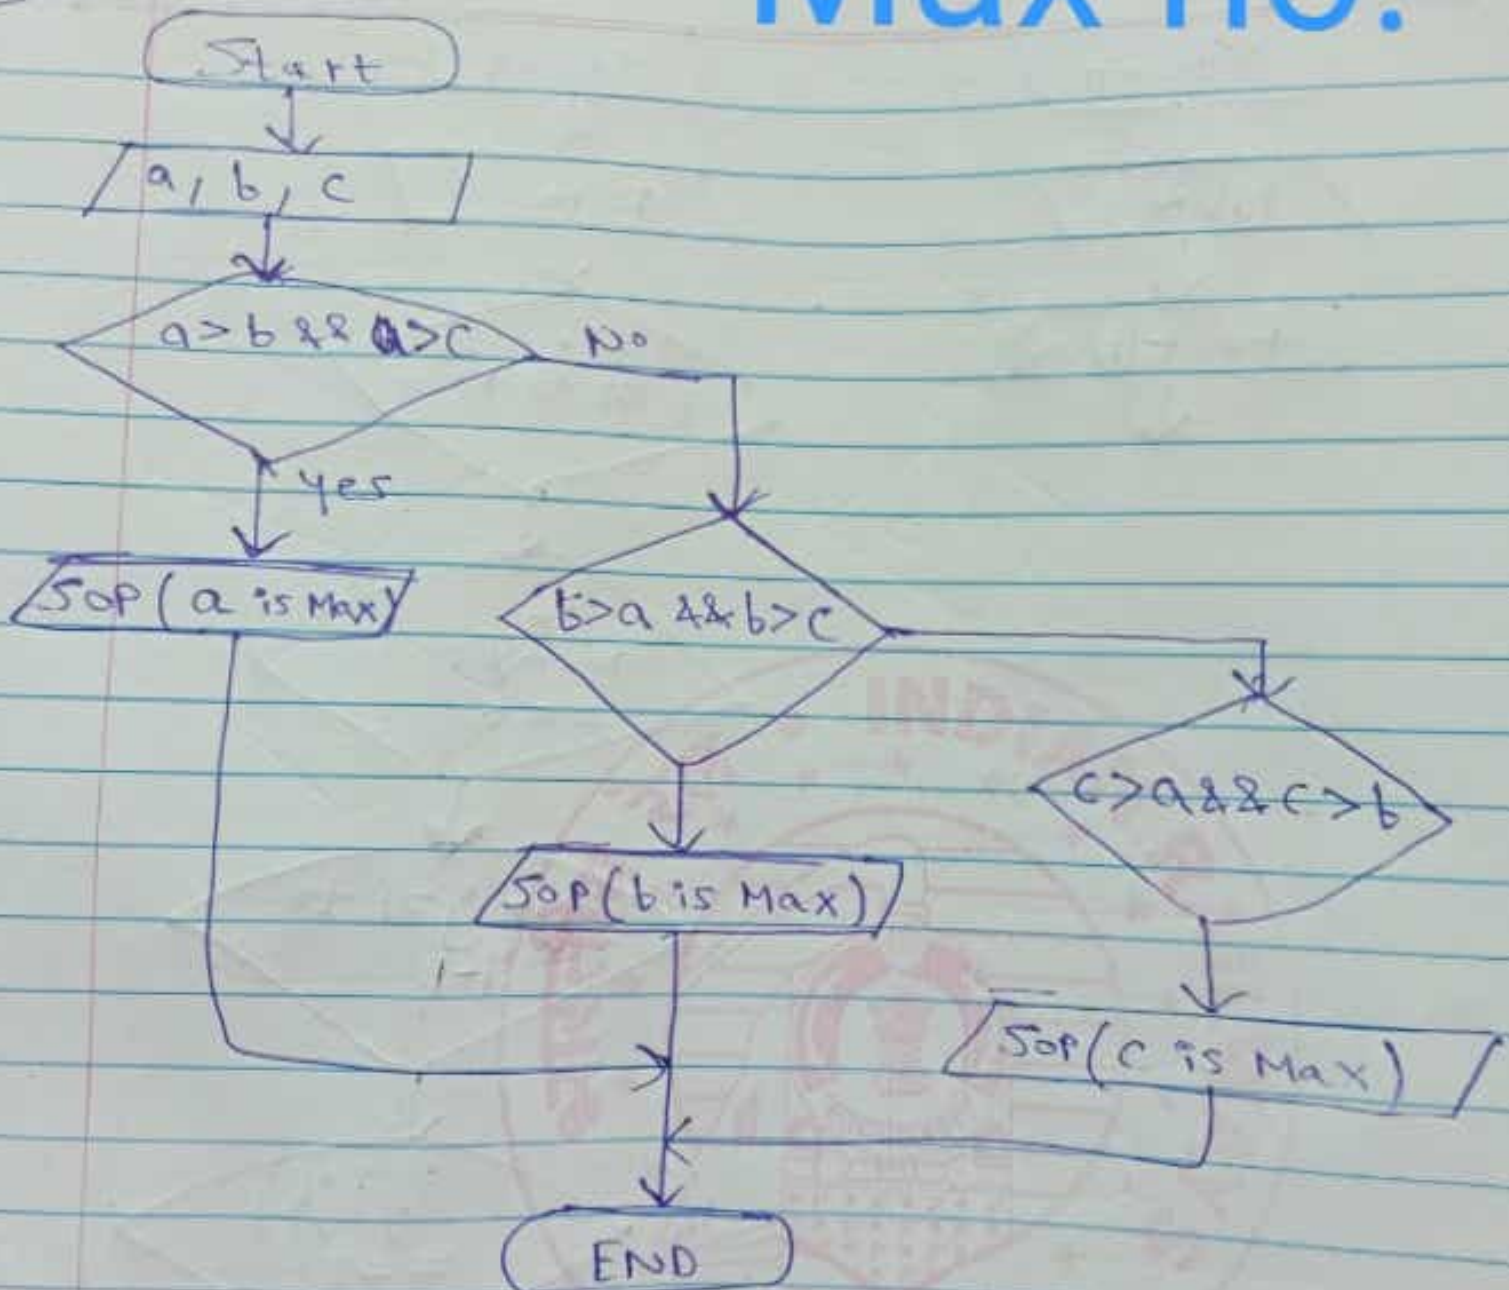 Max no.
Start
a, b, c
a>b && a>c
No
yes
Sop ( a is Max)
b>a && b>c
c>a && c>b
Sop(b is Max)
Sop(c is Max)
END